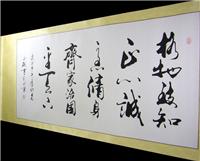 格物致知
正心誠
意脩身
齊家治國
平天下